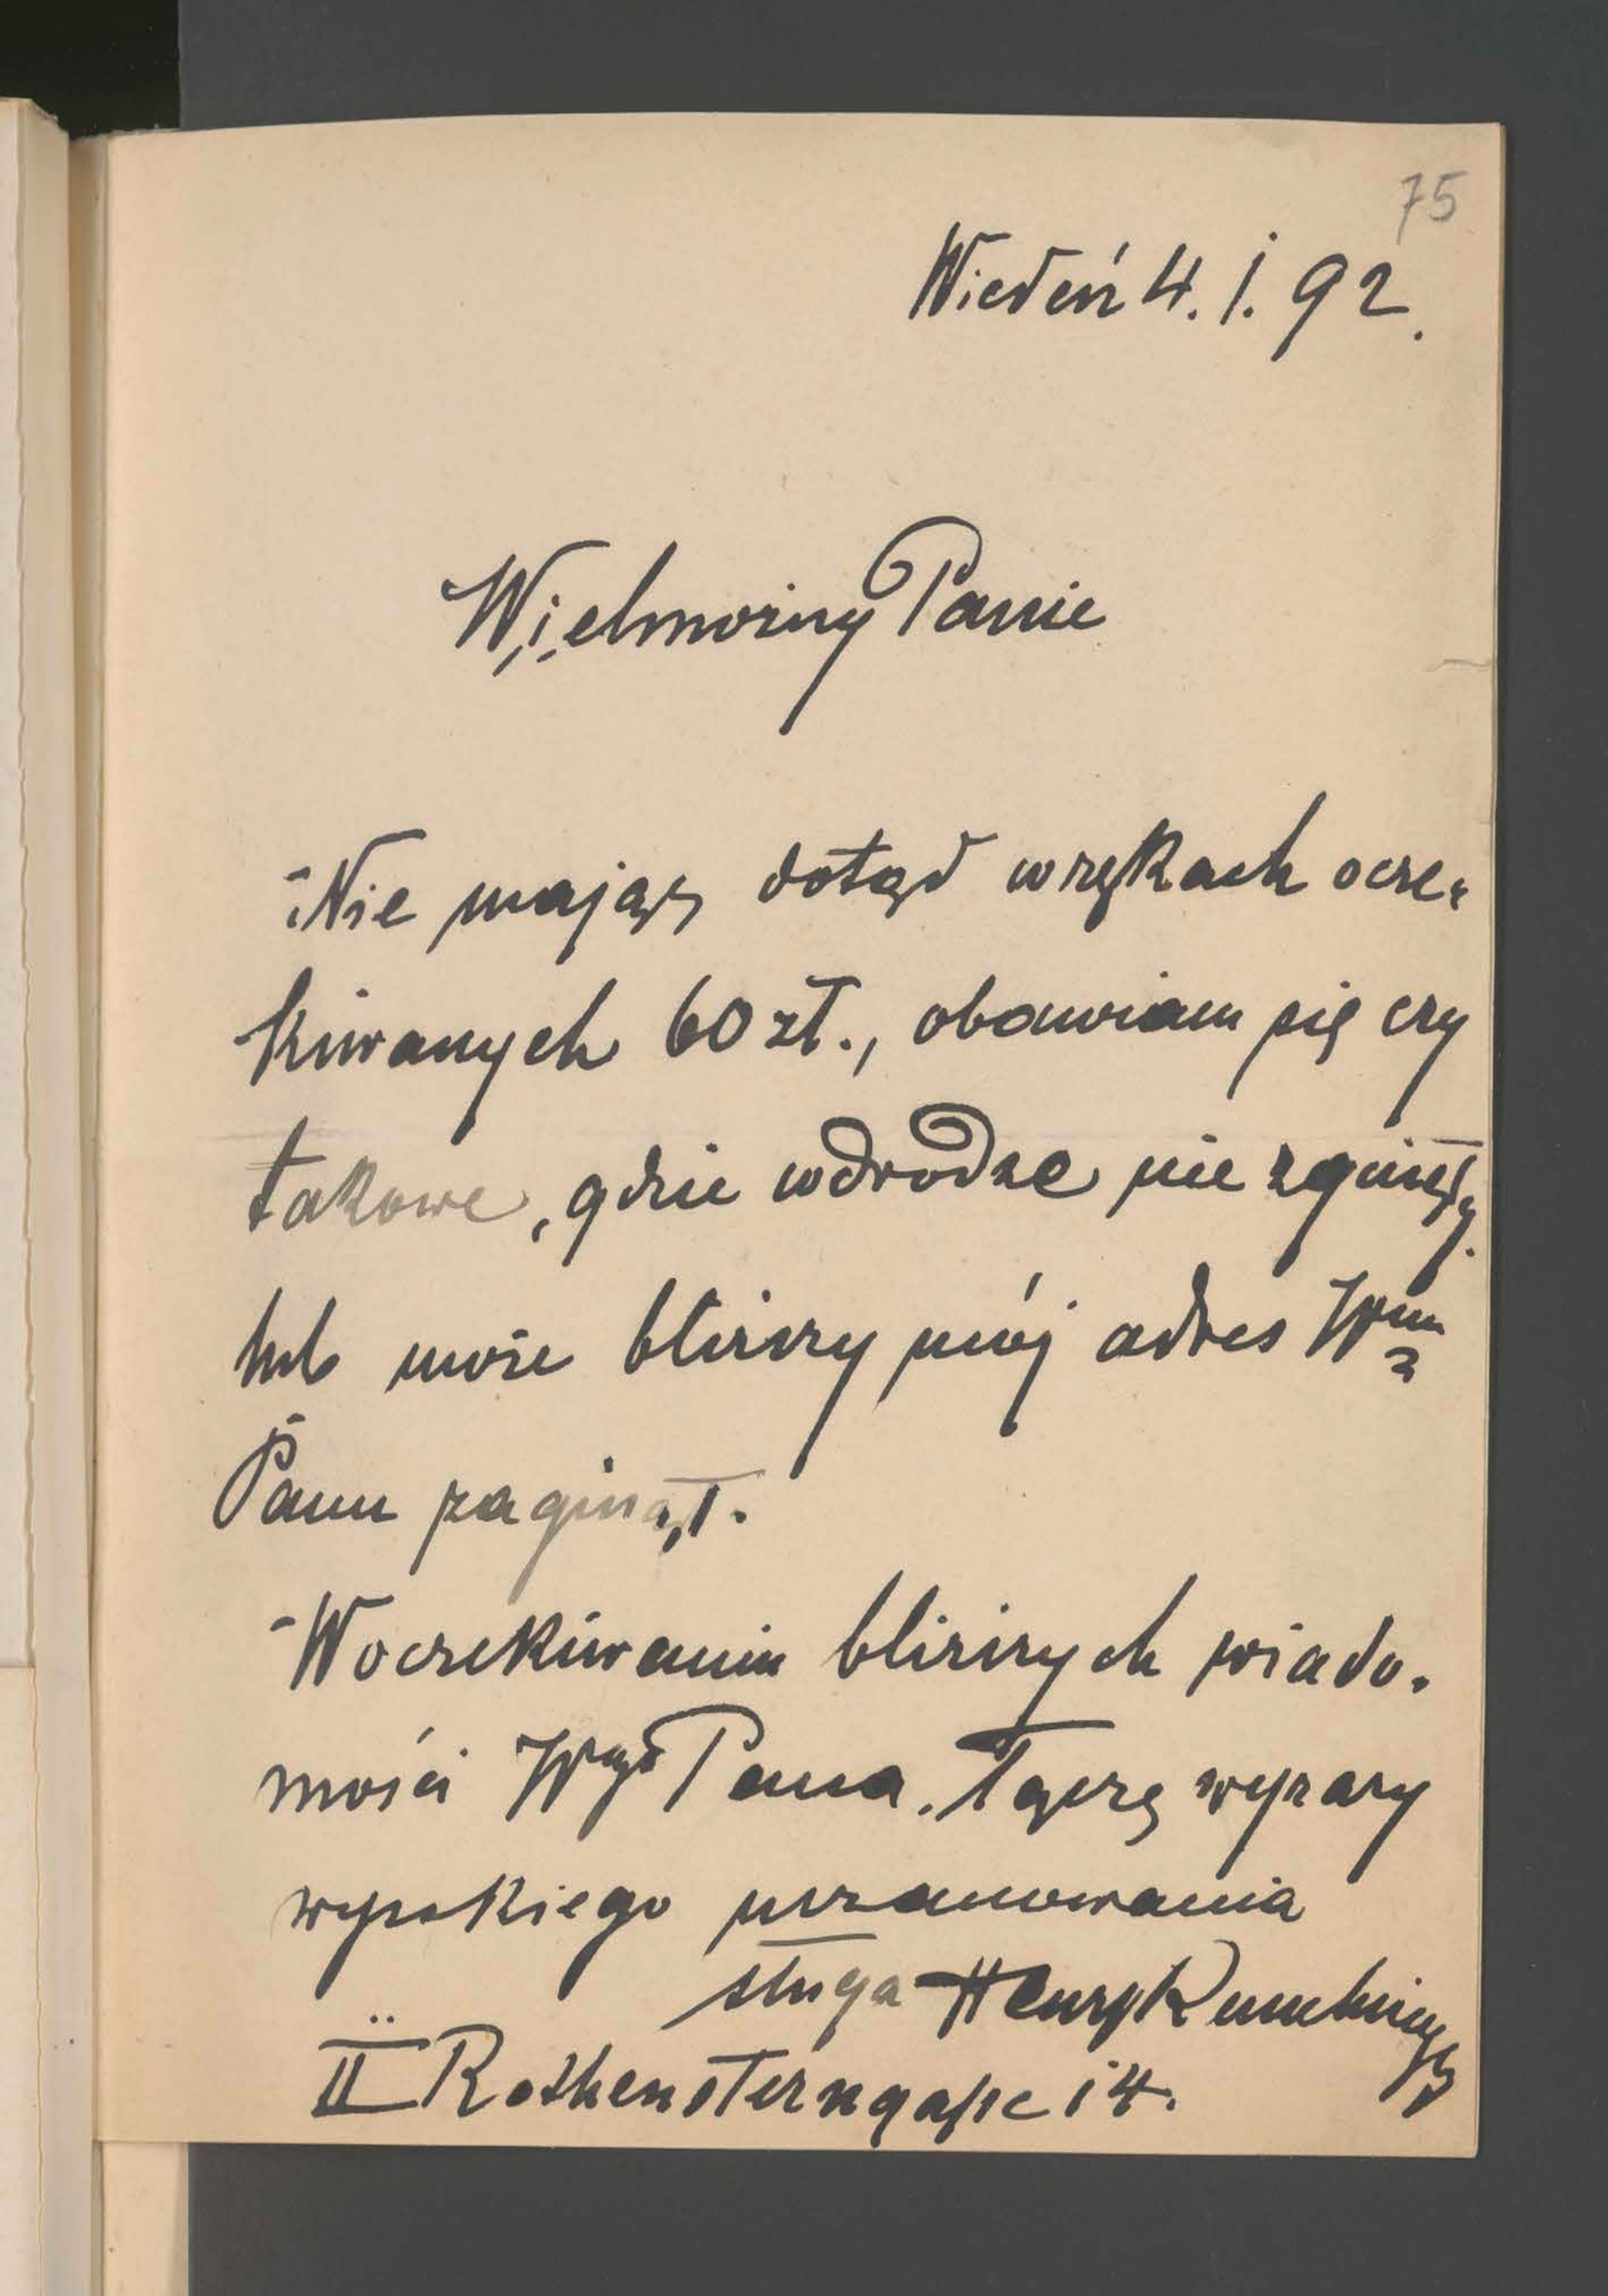 75
Wiedeń 4. 1. 92.
Wielmożny Panie
Nie mając dotąd w rękach ocze-
kiwanych 60 zł., obawiam się czy
takowe, gdzie w drodze nie zginęły.
lub może bliższy mój adres Wmu
Panu zaginął.
W oczekiwaniu bliższych wiado-
mości Wgo Pana. Łączę wyrazy
wysokiego uszanowania
sługa Henryk
II Rothensterngasse 14.